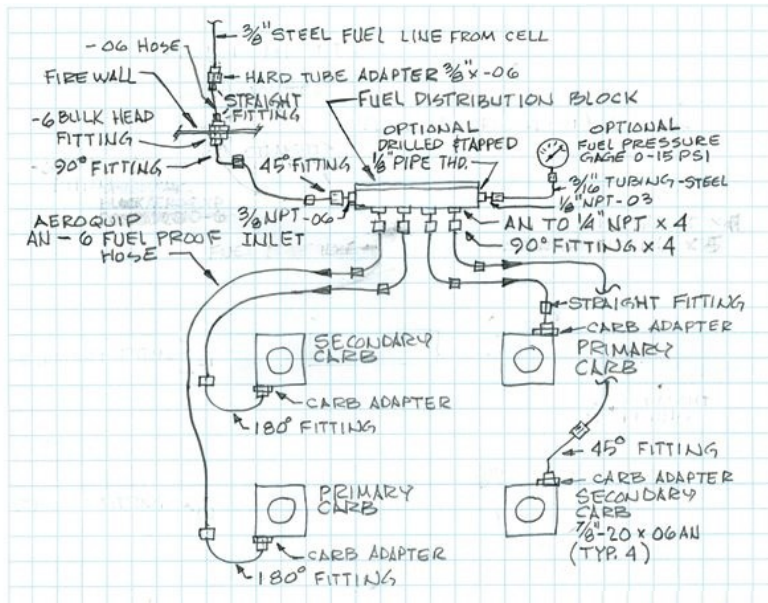 3/8" STEEL FUEL LINE FROM CELL
-06 HOSE
FIREWALL
HARD TUBE ADAPTER 3/8" x -06
STRAIGHT
FITTING
FUEL DISTRIBUTION BLOCK
-6 BULK HEAD
FITTING
OPTIONAL
DRILLED & TAPPED
1/8" PIPE THD.
OPTIONAL
FUEL PRESSURE
GAGE 0-15 PSI
90° FITTING
45° FITTING
3/16" TUBING-STEEL
1/8" NPT-03
3/8 NPT-06
INLET
AN TO 1/4" NPT x 4
90° FITTING x 4
AEROQUIP
AN-6 FUEL PROOF
HOSE
STRAIGHT FITTING
CARB ADAPTER
PRIMARY
CARB
SECONDARY
CARB
CARB ADAPTER
180° FITTING
45° FITTING
CARB ADAPTER
SECONDARY
CARB
7/8"-20 x 06AN
(TYP. 4)
PRIMARY
CARB
CARB ADAPTER
180° FITTING